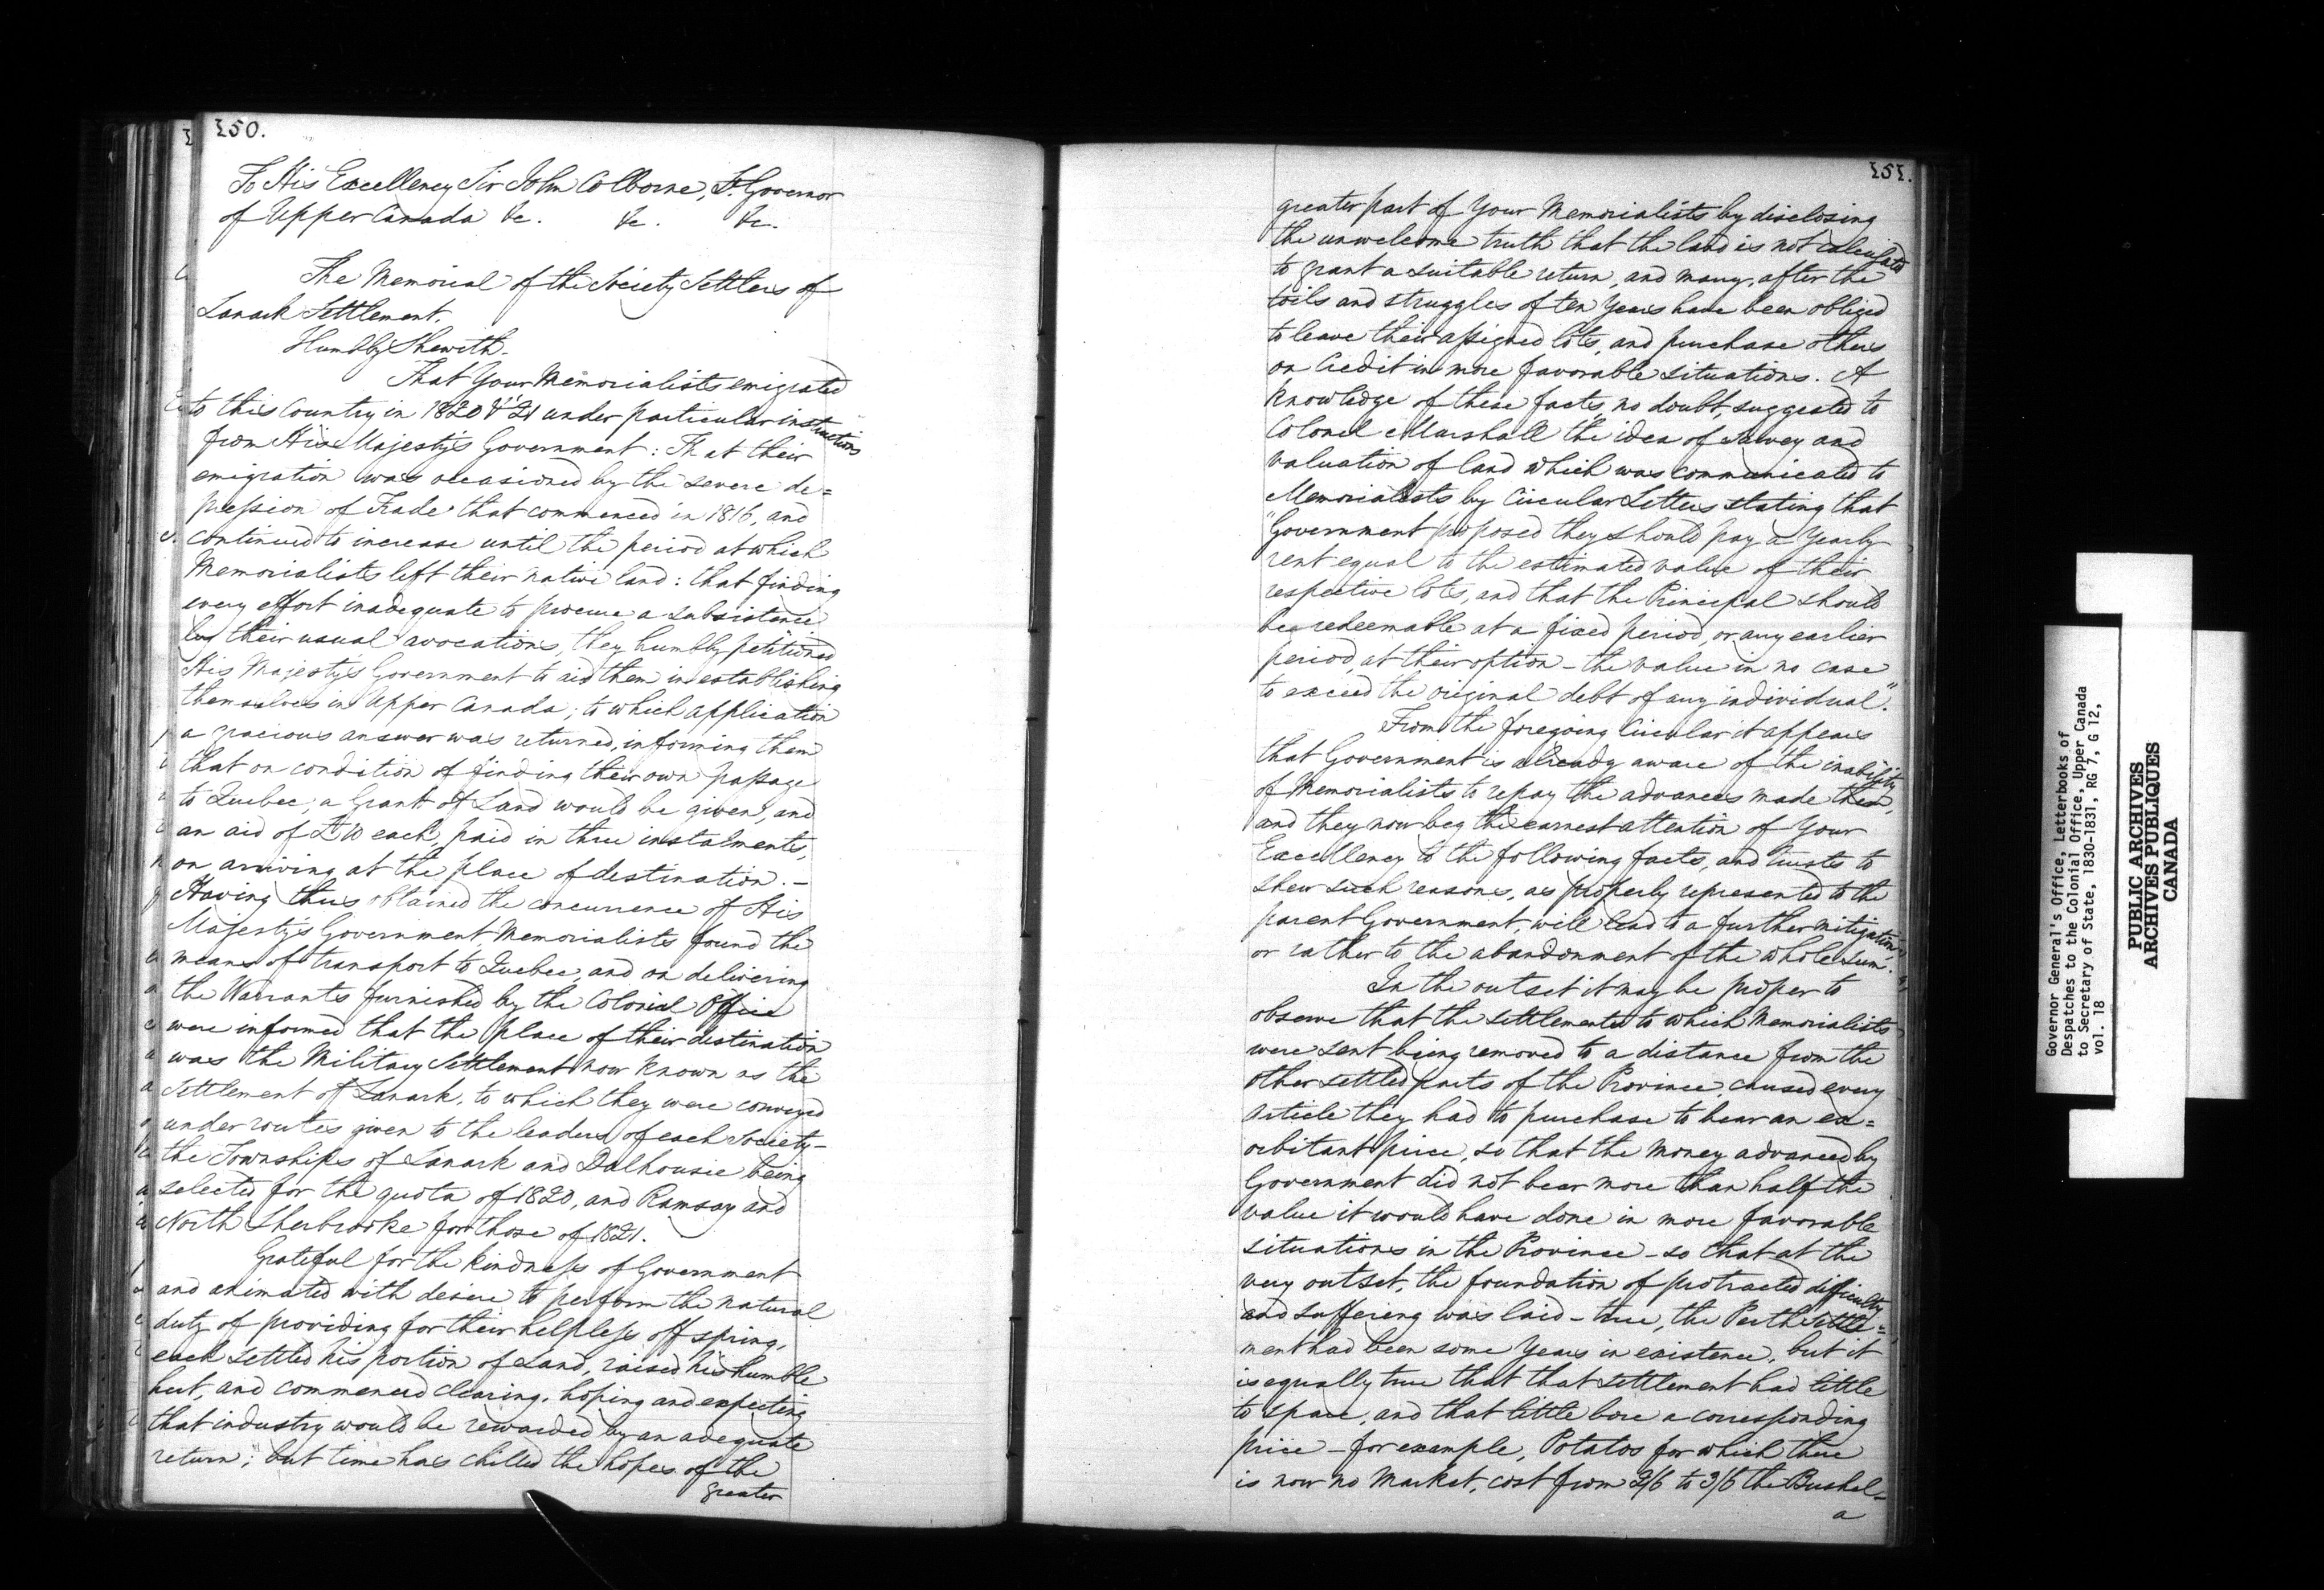 150.
To His Excellency Sir John Colborne, Lt. Governor
of Upper Canada &c. &c. &c.
The Memorial of the Society Settlers of
Lanark Settlement.
Humbly Sheweth.
That Your Memorialists emigrated
to this Country in 1820 & 21 under particular instructions
from His Majesty's Government: That their
emigration was occasioned by the severe de=
pression of Trade that commenced in 1816, and
continued to increase until the period at which
Memorialists left their native land: that finding
every effort inadequate to procure a subsistence
by their usual avocations, they humbly petitioned
His Majesty's Government to aid them in establishing
themselves in Upper Canada; to which application
a gracious answer was returned, informing them
that on condition of finding their own passage
to Quebec, a Grant of Land would be given, and
an aid of £10 each, paid in three instalments,
on arriving at the place of destination. –
Having thus obtained the concurrence of His
Majesty's Government Memorialists found the
means of transport to Quebec, and on delivering
the Warrants furnished by the Colonial Office
were informed that the place of their destination
was the Military Settlement now known as the
Settlement of Lanark, to which they were conveyed
under routes given to the leaders of each Society –
the Townships of Lanark and Dalhousie being
selected for the quota of 1820, and Ramsay and
North Sherbrooke for those of 1821.
Grateful for the kindness of Government
and animated with desire to perform the natural
duty of providing for their helpless off spring,
each settled his portion of Land, raised his humble
hut, and commenced clearing, hoping and expecting
that industry would be rewarded by an adequate
return; but time has chilled the hopes of the
greater
151.
greater part of Your Memorialists by disclosing
the unwelcome truth that the land is not calculated
to grant a suitable return, and many, after the
toils and struggles of ten Years have been obliged
to leave their assigned lots, and purchase others
on Credit in more favorable situations. A
knowledge of these facts, no doubt, suggested to
Colonel Marshall the idea of Survey and
valuation of land which was communicated to
Memorialists by Circular Letters stating that
"Government proposed they should pay a Yearly
rent equal to the estimated value of their
respective lots, and that the Principal should
be redeemable at a fixed period, or any earlier
period, at their option – the value in no case
to exceed the original debt of any individual."
From the foregoing Circular it appears
that Government is already aware of the inability
of Memorialists to repay the advances made them,
and they now beg the earnest attention of Your
Excellency to the following facts, and trusts to
shew such reasons, as properly represented to the
parent Government, will lead to a further mitigation,
or rather to the abandonment of the whole sum.
In the outset it may be proper to
observe that the settlements to which Memorialists
were sent being removed to a distance from the
other settled parts of the Province, caused every
article they had to purchase to bear an ex=
orbitant price, so that the money advanced by
Government did not bear more than half the
value it would have done in more favorable
situations in the Province – so that at the
very outset, the foundation of protracted difficulty
and suffering was laid – true, the Perth Settle=
ment had been some Years in existence, but it
is equally true that that settlement had little
to spare, and that little bore a corresponding
price – for example, Potatos for which there
is now no Market, cost from 2/6 to 3/6 the Bushel –
a
Governor General's Office, Letterbooks of
Despatches to the Colonial Office, Upper Canada
to Secretary of State, 1830-1831, RG 7, G 12,
vol. 18
PUBLIC ARCHIVES
ARCHIVES PUBLIQUES
CANADA